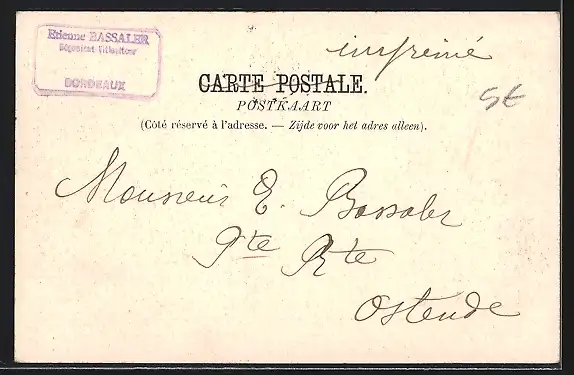 Etienne BASSALER
Négociant Viticulteur
BORDEAUX
imprimé
CARTE POSTALE.
POSTKAART
5€
(Côté réservé à l'adresse. — Zijde voor het adres alleen).
Monsieur E. Bassaler
Pte Rte
Ostende